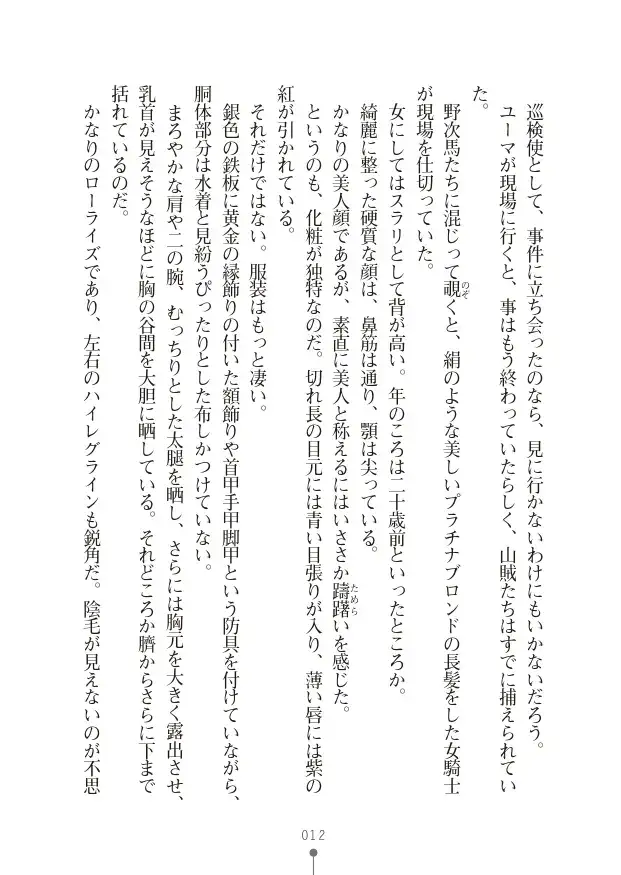 巡検使として、事件に立ち会ったのなら、見に行かないわけにもいかないだろう。
ユーマが現場に行くと、事はもう終わっていたらしく、山賊たちはすでに捕えられてい
た。
野次馬たちに混じって覗くと、絹のような美しいプラチナブロンドの長髪をした女騎士
のぞ
が現場を仕切っていた。
女にしてはスラリとして背が高い。年のころは二十歳前といったところか。
綺麗に整った硬質な顔は、鼻筋は通り、顎は尖っている。
かなりの美人顔であるが、素直に美人と称えるにはいささか躊躇いを感じた。
ためら
というのも、化粧が独特なのだ。切れ長の目元には青い目張りが入り、薄い唇には紫の
紅が引かれている。
それだけではない。服装はもっと凄い。
銀色の鉄板に黄金の縁飾りの付いた額飾りや首甲手甲脚甲という防具を付けていながら、
胴体部分は水着と見紛うぴったりとした布しかつけていない。
まろやかな肩や二の腕、むっちりとした太腿を晒し、さらには胸元を大きく露出させ、
乳首が見えそうなほどに胸の谷間を大胆に晒している。それどころか臍からさらに下まで
括れているのだ。
かなりのローライズであり、左右のハイレグラインも鋭角だ。陰毛が見えないのが不思
012